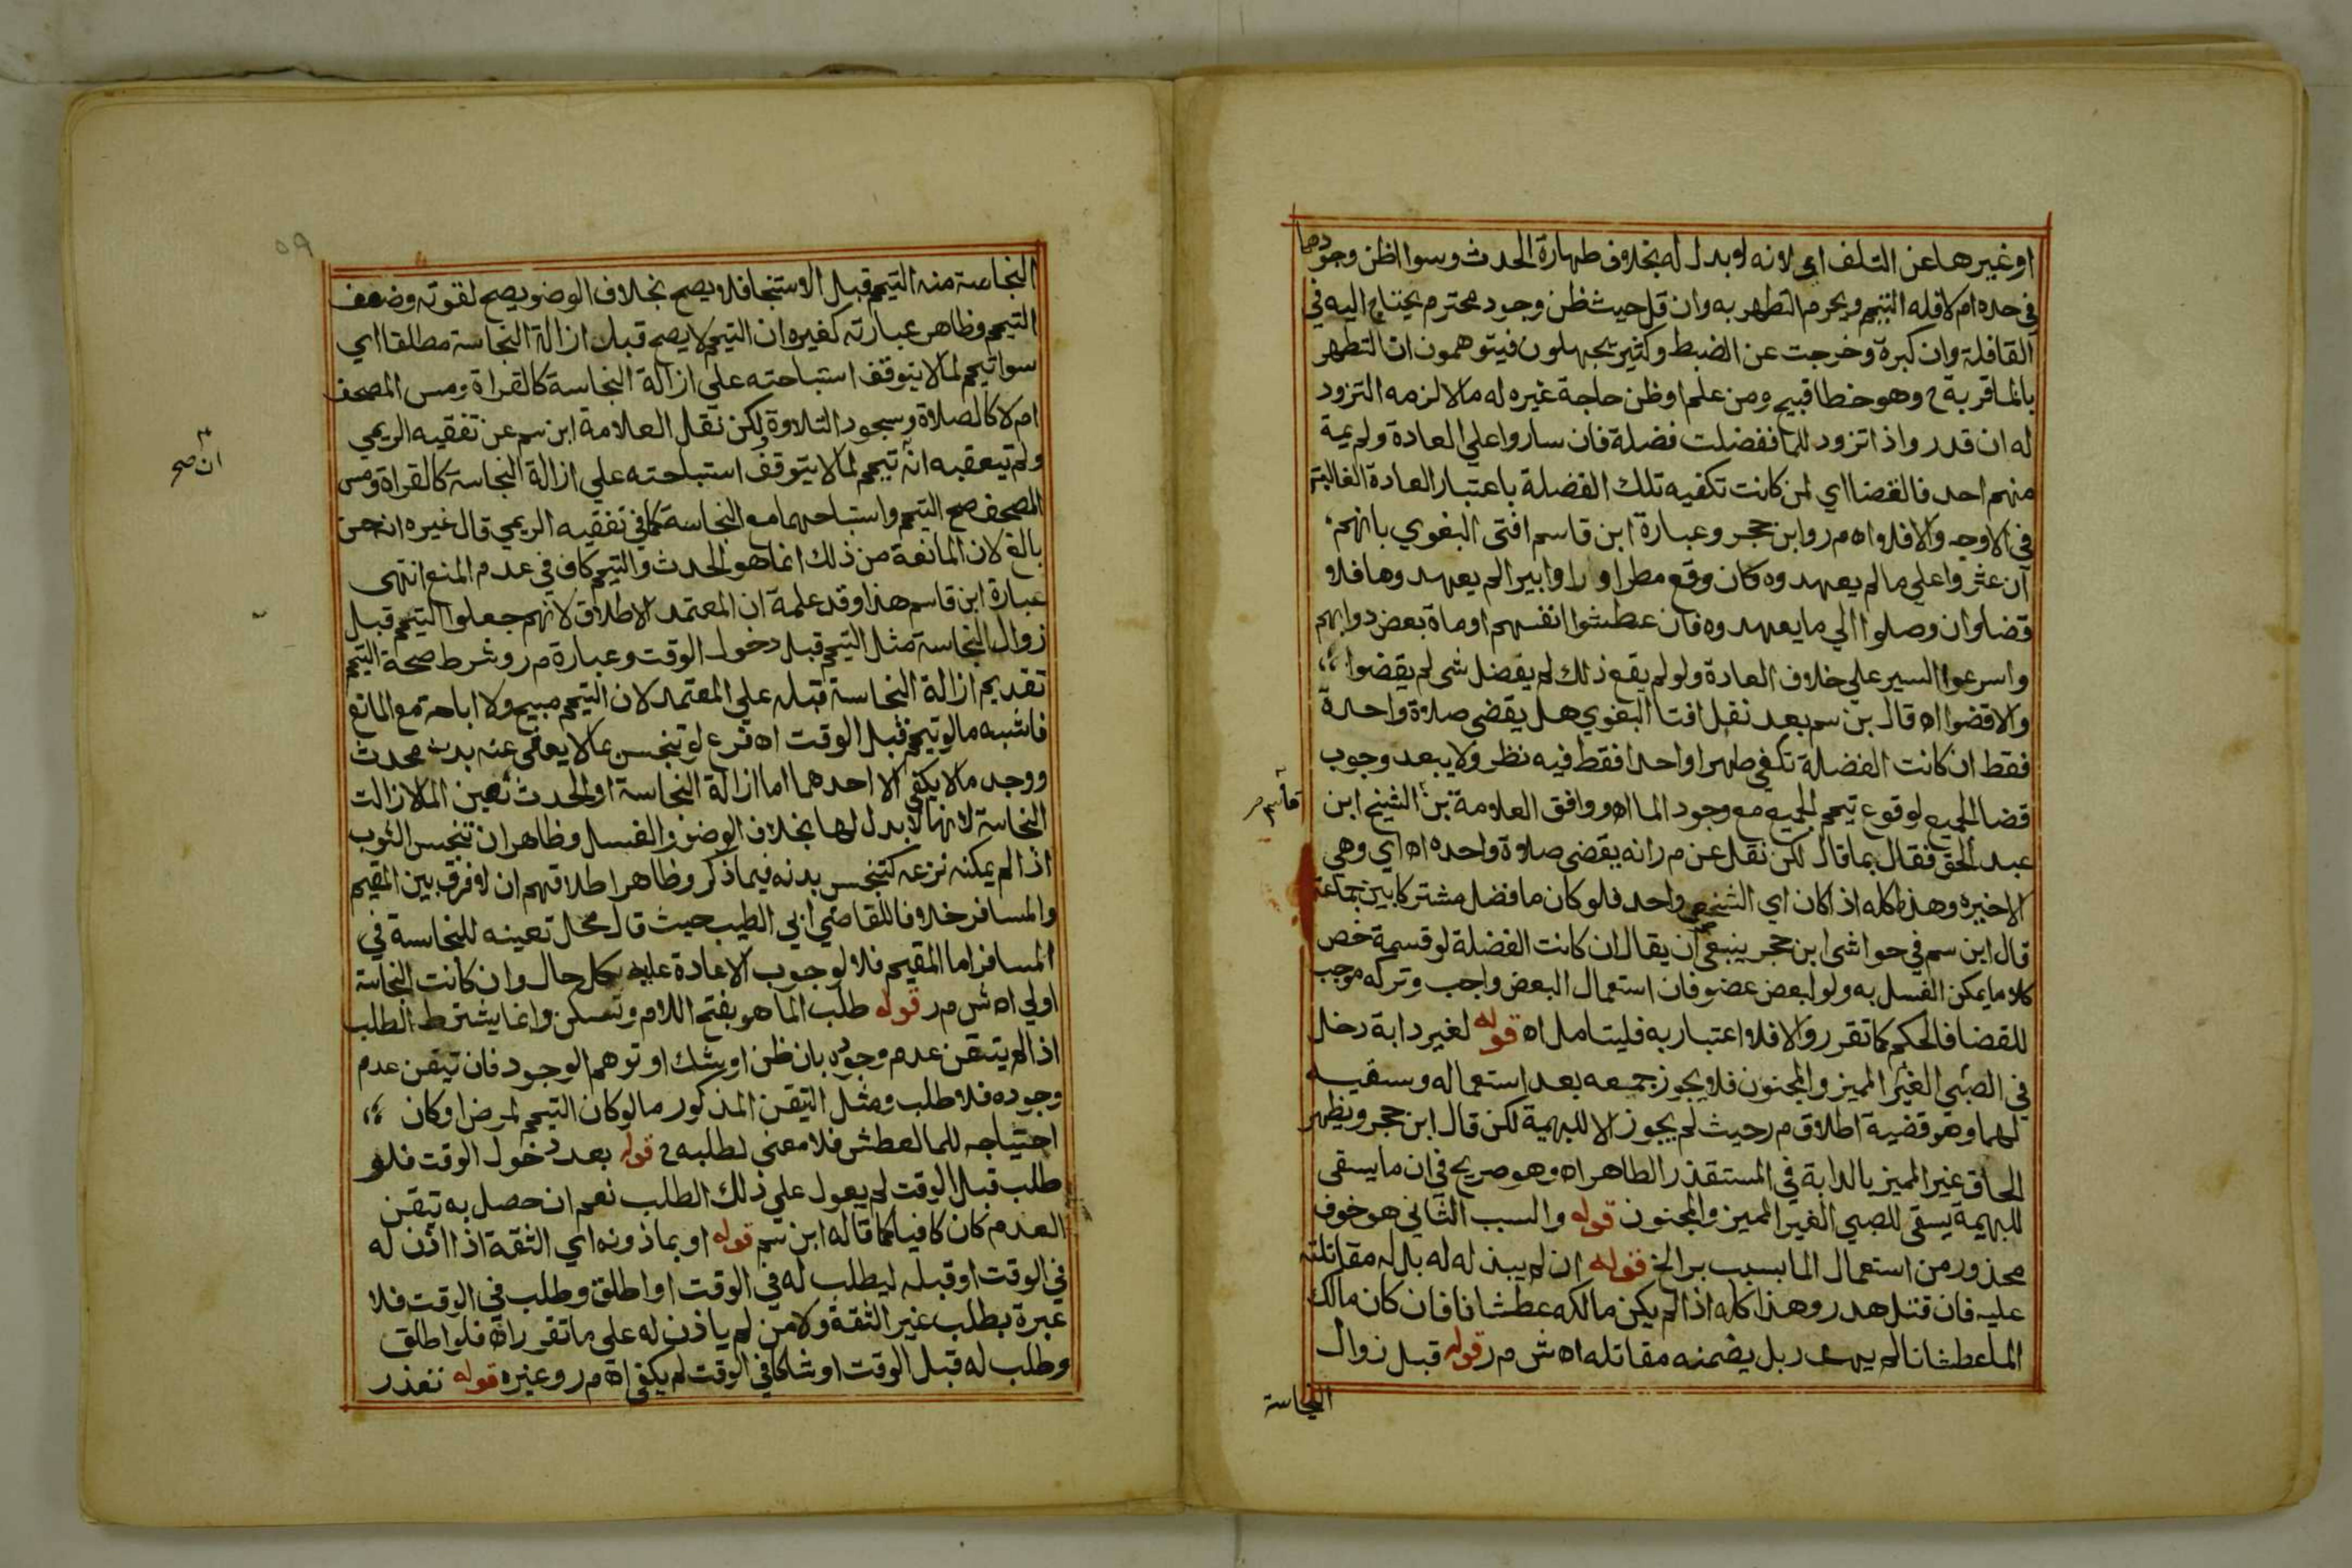 او غيرها عن التلف اي لانه لا بدل له بخلاف طهارة الحدث وسوا ظن وجودها
في حده ام لا فله التيمم ويحرم التطهر به وان قل حيث ظن وجود محترم يحتاج اليه في
القافلة وان كبرة وخرجت عن الضبط وكثير يجهلون فيتوهمون ان التطهر
بالما قربة ح وهو خطا قبيح ومن علم او ظن حاجة غيره له مالا لزمه التزود
له ان قدر واذا تزود للما ففضلت فضلة فان ساروا علي العادة ولم يمة
منهم احد فالقضا اي لمن كانت تكفيه تلك الفضلة باعتبار العادة الغالبة
في الاوجه والا فلا اه م ر وابن حجر وعبارة ابن قاسم افتى البغوي بانهم
ان عثروا علي مالم يعهدوه كان وقع مطر او راوا بيرا لم يعهدوها فلا
قضا وان وصلوا الي ما يعهدوه فان عطشوا انفسهم او ماة بعض دوابهم
واسرعوا السير علي خلاف العادة ولو لم يقع ذلك لم يفضل شى لم يقضوا
والا قضوا اه قال بن سم بعد نقل افتا البغوي هل يقضي صلاة واحدة
فقط ان كانت الفضلة تكفي طهرا واحدا فقط فيه نظر ولا يبعد وجوب
قضا الجميع لوقوع تيمم الجميع مع وجود الما اه ووافق العلامة بن الشيخ ابن
قاسم صح
عبد الحق فقال بما قال لكن نقل عن م ر انه يقضي صلاة واحده اه اي وهي
الاخيره وهذا كله اذا كان اي الشخص واحد فلو كان ما فضل مشتركا بين جماعة
قال ابن سم في حواشى ابن حجر ينبغي ان يقال ان كانت الفضلة لو قسمة خص
كلا ما يمكن الغسل به ولو لبعض عضو فان استعمال البعض واجب وتركه موجب
للقضا فالحكم كما تقرر والا فلا اعتبار به فليتامل اه قوله لغير دابة دخل
في الصبي الغير المميز والمجنون فلا يجوز جمعه بعد استعماله وسقيه
لهما وهو قضية اطلاق م ر حيث لم يجوز الا للبهيمة لكن قال ابن حجر ويظهر
الحاق غير المميز بالدابة في المستقذر الطاهر اه وهو صريح في ان ما يسقى
للبهيمة يسقى للصبي الغير المميز والمجنون قوله والسبب الثاني هو خوف
محذور من استعمال الما بسبب بر الخ قوله ان لم يبذله له بل له مقاتلته
عليه فان قتل هدر وهذا كله اذا لم يكن مالكه عطشانا فان كان مالك
الما عطشانا لم يهدر بل يضمنه مقاتله اه ش م ر قوله قبل زوال
النجاسة
٥٩
النجاسة منه التيمم قبل الاستنجا فلا يصح بخلاف الوضو يصح لقوته وضعف
التيمم وظاهر عبارته كغيره ان التيمم لا يصح قبل ازالة النجاسة مطلقا اي
سوا تيمم لما لا يتوقف استباحته علي ازالة النجاسة كالقراة ومس المصحف
ام لا كالصلاة وسجود التلاوة لكن نقل العلامة ابن سم عن تفقيه الريمي
ان صح
ولم يتعقبه انه تيمم لما لا يتوقف استباحته علي ازالة النجاسة كالقراة ومس
المصحف صح التيمم واستباحهما مع النجاسة كما في تفقيه الريمي قال غيره
بالغ لان المانعة من ذلك انما هو الحدث والتيمم كاف في عدم المنع انتهى
عبارة ابن قاسم هذا وقد علمة ان المعتمد الاطلاق لانهم جعلوا التيمم قبل
زوال النجاسة مثل التيمم قبل دخول الوقت وعبارة م ر وشرط صحة التيمم
تقديم ازالة النجاسة قبله علي المعتمد لان التيمم مبيح ولا اباحة مع المانع
فاشبه ما لو تيمم قبل الوقت اه فرع لو تنجس بما لا يعفى عنه بدن محدث
ووجد مالا يكفي الا احدهما اما ازالة النجاسة او الحدث تعين الما لازالت
النجاسة لانها لا بدل لها بخلاف الوضو والغسل وظاهر ان تنجس الثوب
اذا لم يمكنه نزعه كتنجس بدنه فيما ذكر وظاهر اطلاقهم ان لا فرق بين المقيم
والمسافر خلافا للقاضي ابي الطيب حيث قال محل تعينه للنجاسة في
المسافر اما المقيم فلا لوجوب الاعادة عليه بكل حال وان كانت النجاسة
اولي اه ش م ر قوله طلب الما هو بفتح اللام وتسكن وانما يشترط الطلب
اذا لم يتيقن عدم وجوده بان ظن او شك او توهم الوجود فان تيقن عدم
وجوده فلا طلب ومثل التيقن المذكور ما لو كان التيمم لمرض او كان
احتياجه للما لعطش فلا معنى لطلبه ح قوله بعد دخول الوقت فلو
طلب قبل الوقت لم يعول علي ذلك الطلب نعم ان حصل به تيقن
العدم كان كافيا كما قاله ابن سم قوله او بماذونه اي الثقة اذا اذن له
في الوقت او قبله ليطلب له في الوقت او اطلق وطلب في الوقت فلا
عبرة بطلب غير الثقة ولا من لم ياذن له على ما تقرر اه فلو اطلق
وطلب له قبل الوقت او شاكا في الوقت لم يكفي اه م ر وغيره قوله تعذر